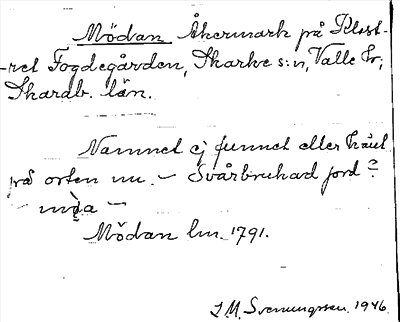 Mödan Åkermark på Klost-
-ret Fogdegården, Skarke s:n, Valle Hr;
Skarab. län.
Namnet ej funnet eller känt
på orten nu. - Svårbrukad jord?
- möa -
Mödan lm. 1791.
J.M. Svenungsson. 1946.